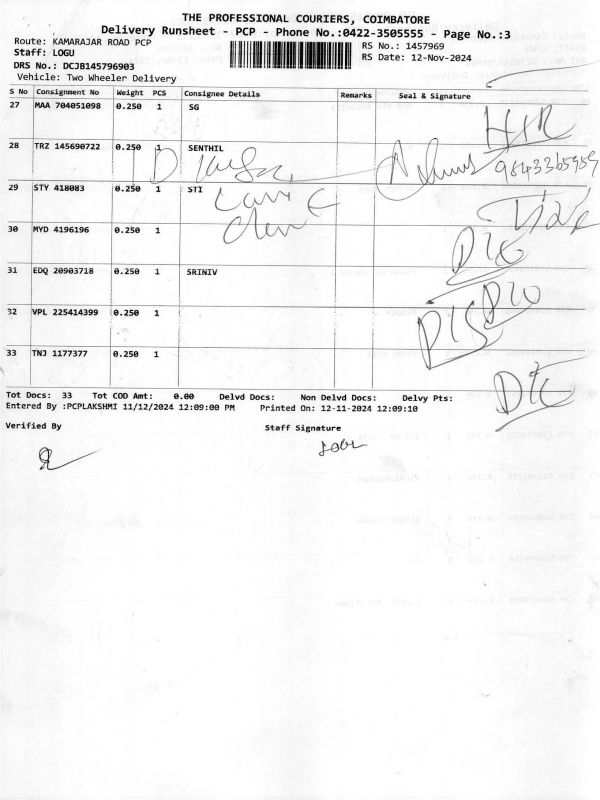 THE PROFESSIONAL COURIERS, COIMBATORE
Delivery Runsheet - PCP - Phone No.:0422-3505555 - Page No.:3
Route: KAMARAJAR ROAD PCP RS No.: 1457969
Staff: LOGU RS Date: 12-Nov-2024
DRS No.: DCJB145796903
Vehicle: Two Wheeler Delivery
S No Consignment No Weight PCS Consignee Details Remarks Seal & Signature
27 MAA 704051098 0.250 1 SG
28 TRZ 145690722 0.250 1 SENTHIL
9843365959
29 STY 418083 0.250 1 STI
30 MYD 4196196 0.250 1
31 EDQ 20903718 0.250 1 SRINIV
32 VPL 225414399 0.250 1
33 TNJ 1177377 0.250 1
Tot Docs: 33 Tot COD Amt: 0.00 Delvd Docs: Non Delvd Docs: Delvy Pts:
Entered By :PCPLAKSHMI 11/12/2024 12:09:00 PM Printed On: 12-11-2024 12:09:10
Verified By Staff Signature